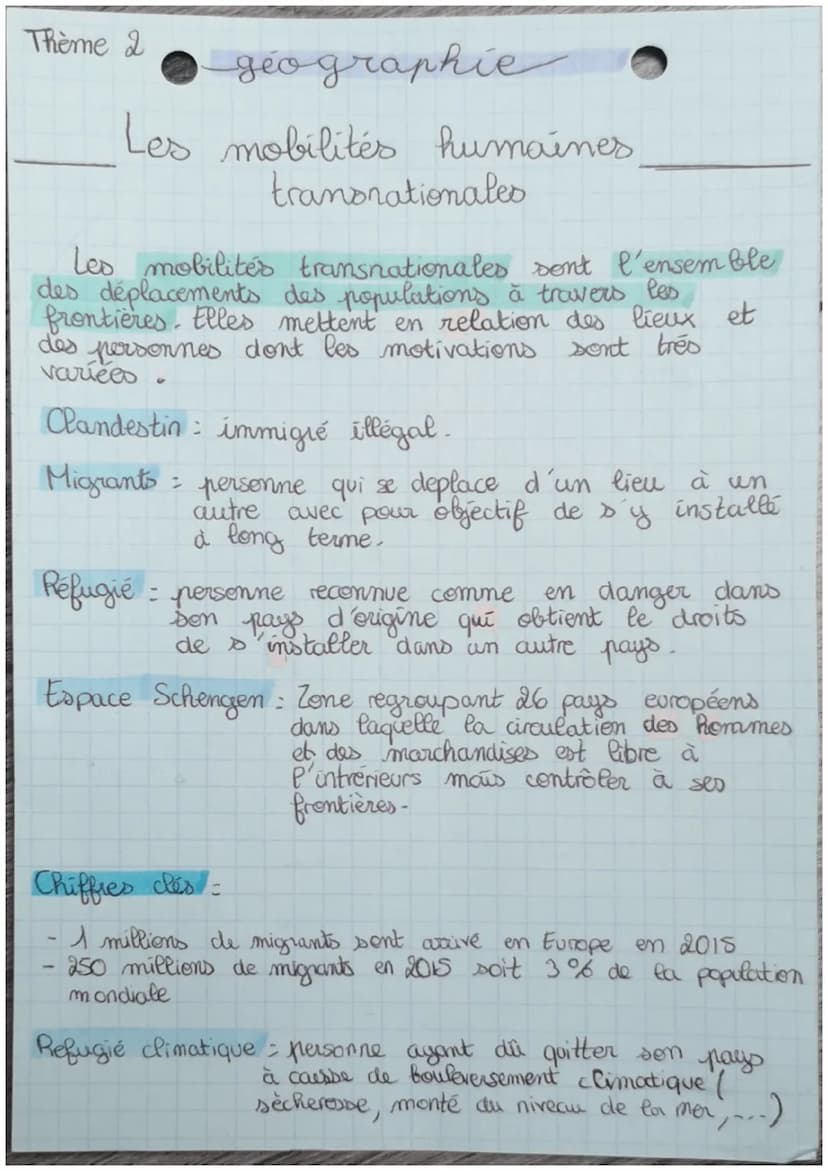 Thème 2
géographie
Les mobilités humaines
transnationales
Les mobilités transnationales sont l'ensemble
des déplacements des populations à travers les
frontières. Elles mettent en relation des lieux et
des personnes dont les motivations sont très
variées.
Clandestin : immigré illégal.
Migrants : personne qui se deplace d'un lieu à un
autre avec pour objectif de s'y installé
à long terme.
Réfugié : personne reconnue comme en danger dans
son pays d'origine qui obtient le droits
de s'installer dans un autre pays.
Espace Schengen : Zone regroupant 26 pays européens
dans laquelle la circulation des Hommes
et des marchandises est libre à
l'intrérieurs mais contrôler à ses
frontières.
Chiffres clés :
- 1 millions de migrants sont arrivé en Europe en 2015
- 250 millions de migrants en 2015 soit 3 % de la population
mondiale
Refugié climatique : personne ayant dû quitter son pays
à causse de bouleversement climatique (
sècheresse, monté du niveau de la mer,...)